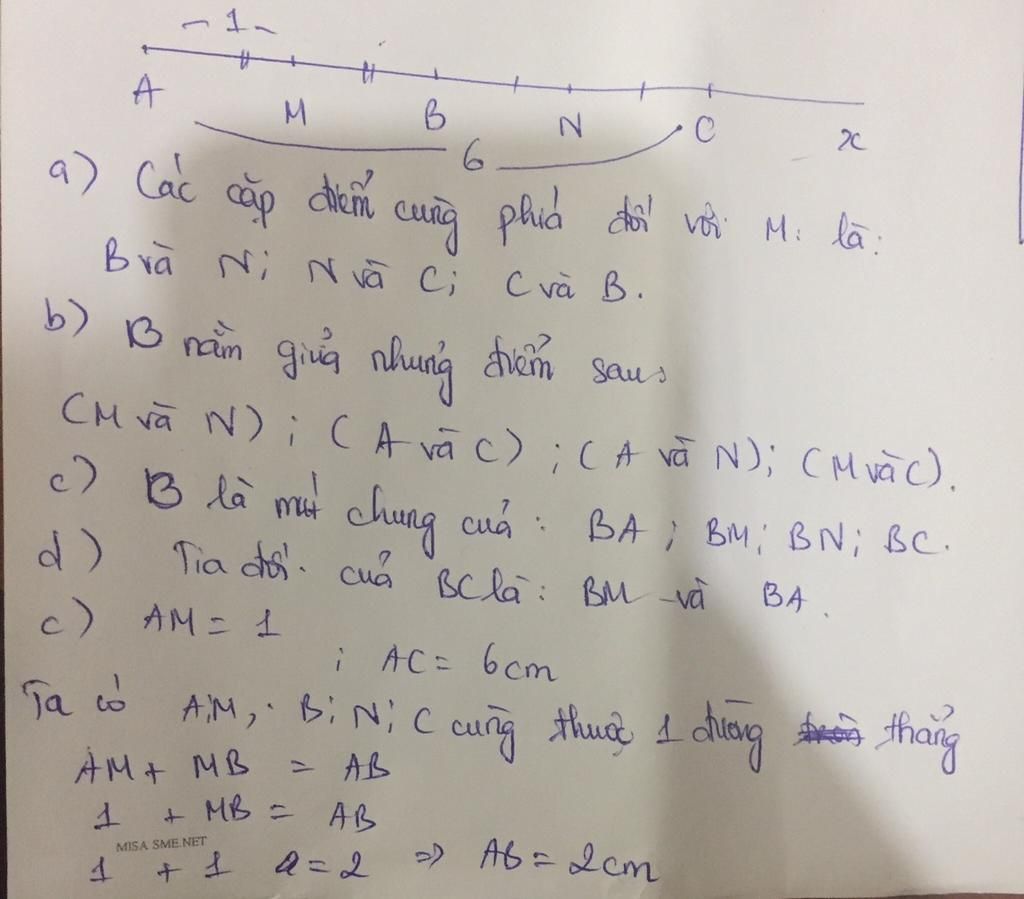 - 1 -
A M B N C x
6
a) Các cặp điểm cùng phiá đối với M: là:
B và N; N và C; C và B.
b) B nằm giửa nhưng điểm sau:
(M và N); (A và C); (A và N); (M và C).
c) B là mút chung cuả: BA; BM; BN; BC.
d) Tia đối cuả BC là: BM và BA.
c) AM = 1
; AC = 6cm
Ta có A; M, B; N; C cùng thuộc 1 đường thẳng
AM + MB = AB
1 + MB = AB
MISA SME.NET
1 + 1 = 2 => AB = 2cm